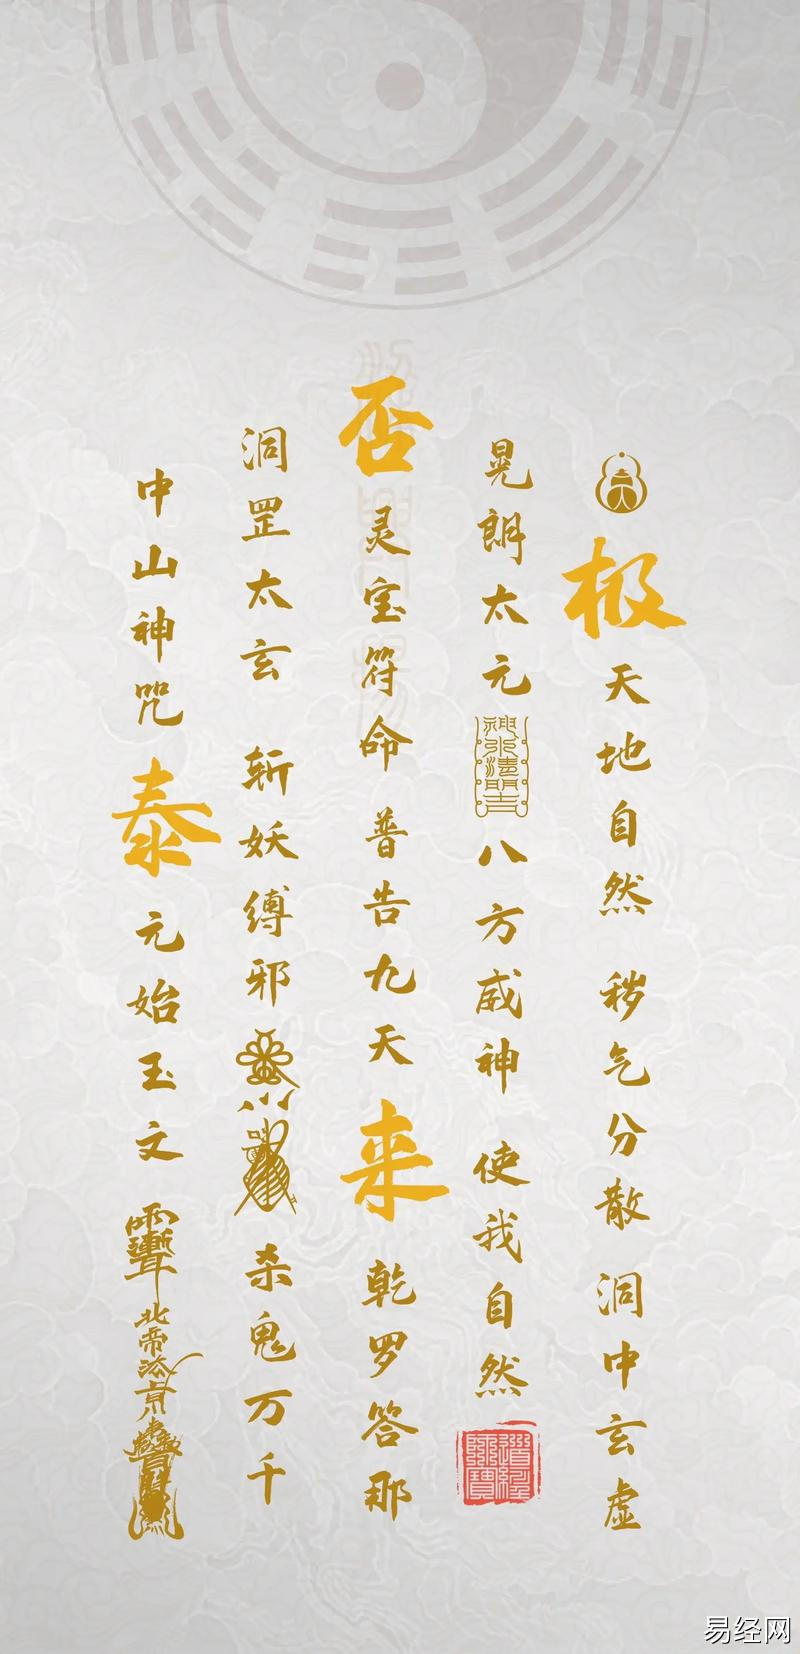 极天地自然 秽气分散 洞中玄虚
晃朗太元 八方威神 使我自然
否灵宝符命 普告九天来乾罗答那
洞罡太玄 斩妖缚邪 杀鬼万千
中山神咒泰元始玉文
易经网